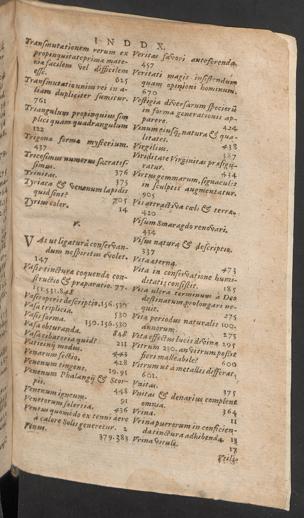 INDDX.
Transmutationem rerum ex
propinquitate prima mate-
riæ facilem vel difficilem
esse. 625
Transmutatio unius rei in a-
liam dupliciter sumitur.
761
Triangulum propinquius sim
plici quam quadrangulum
122
Trigona forma mysterium.
437
Tricesimus numerus sacratis-
simus.
Trinitas. 376
Tyriaca & venenum lapidis
quid sunt? 705
Tyrius color. 14
V.
VAs ut ligatura conservan-
dum ne spiritus evolet.
147
Vasis tinctura coquenda con-
structio & præparatio. 77.
155.531.848
Vasis operis descriptio, 156.530
Vasa triplicia. 530
Vasis forma. 150.156.530
Vasa obturanda. 848
Vasa
Vaticinij modus. 211
Venarum sectio. 428
Venenum tingens. 19.95
Venenum Phalangij & Scor-
pii. 448
Venenum igneum. 91
Venetorum solertia. 436
Ventus quomodo ex cenni aere
à calore Solis generetur. 2
Venus. 379.383
Veritas favori anteferenda.
457
Veritati magis insistendum
quam opinioni hominum.
670
Vestigia diversarum specierū
in forma generationis ap-
parere. 424
Vinum eiusq; natura & qua-
litates. 413
Virgilius. 387
Viriditate Virginitas præfigu-
ratur. 414
Virtus gemmarum, signaculis
in sculptis augmentatur.
507
Vis attractiva cœli & terræ.
420
Visum Smaragdo renovari.
434
Visus natura & descriptio.
337
Vita æterna. 473
Vita in conservatione humi-
ditatis consistit. 185
Vita ultra terminum à Deo
destinatum prolongari ne-
quit. 275
Vita periodus naturalis 100.
annorum. 275
Vita effectus lucis divinæ 251
Vitrum 290. an vitrum possit
fieri malleabile? 600
Vitrum ut a metallis differat,
601.
Vnitas. 375
Vnitas & denarius complent
omnia. 364
Vrina. 11
Vrina puerum in conficien-
da tinctura adhibenda. 13
Vrina vituli. 17